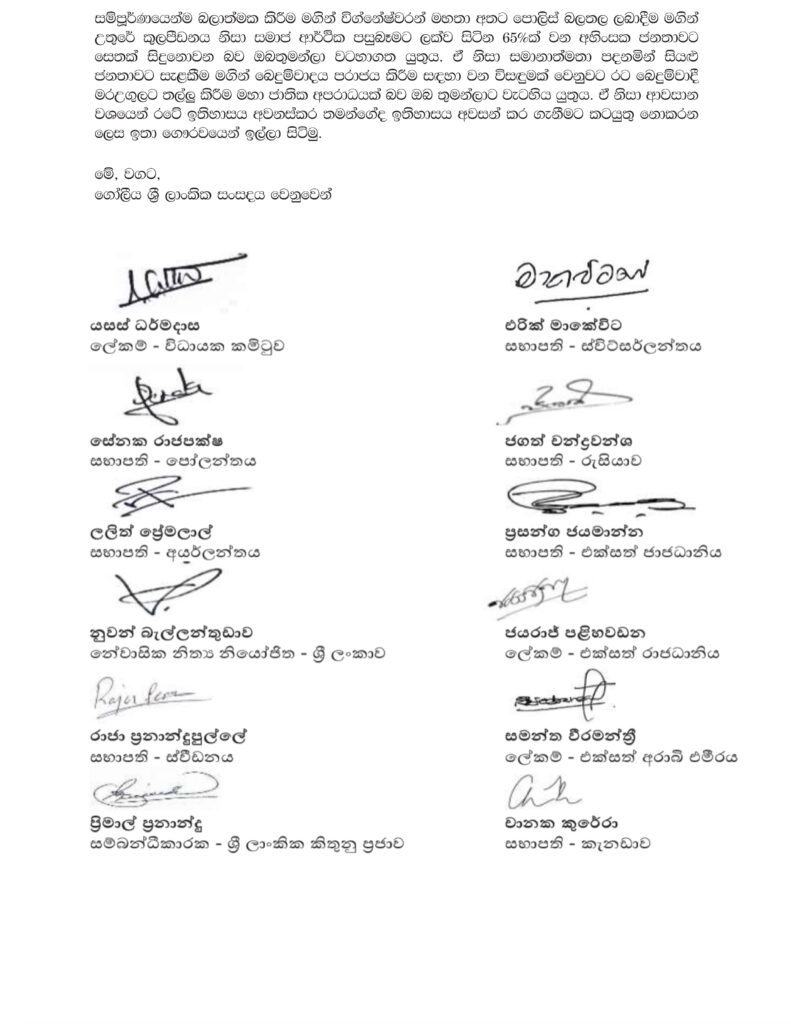 සම්පූර්ණයෙන්ම බලාත්මක කිරීම මගින් විග්නේෂ්වරන් මහතා අතට පොලිස් බලතල ලබාදීම මගින්
උතුරේ කුලපීඩනය නිසා සමාජ ආර්ථික පසුබෑමට ලක්ව සිටින 65%ක් වන අහිංසක ජනතාවට
සෙතක් සිදුනොවන බව ඔබතුමන්ලා වටහාගත යුතුය. ඒ නිසා සමානාත්මතා පදනමින් සියළු
ජනතාවට සැළකීම මගින් බෙදුම්වාදය පරාජය කිරීම සඳහා වන විසඳුමක් වෙනුවට රට බෙදුම්වාදී
මරඋගුලට තල්ලු කිරීම මහා ජාතික අපරාධයක් බව ඔබ තුමන්ලාට වැටහිය යුතුය. ඒ නිසා ආවසාන
වශයෙන් රටේ ඉතිහාසය අවනස්කර තමන්ගේද ඉතිහාසය අවසන් කර ගැනීමට කටයුතු නොකරන
ලෙස ඉතා ගෞරවයෙන් ඉල්ලා සිටිමු.
මේ, වගට,
ගෝලීය ශ්‍රී ලාංකික සංසදය වෙනුවෙන්
යසස් ධර්මදාස
ලේකම් - විධායක කමිටුව
එරික් මාකේවිට
සභාපති - ස්විට්සර්ලන්තය
සේනක රාජපක්ෂ
සභාපති - පෝලන්තය
ජගත් චන්ද්‍රවන්ශ
සභාපති - රුසියාව
ලලිත් ප්‍රේමලාල්
සභාපති - අයර්ලන්තය
ප්‍රසන්ග ජයමාන්න
සභාපති - එක්සත් රාජධානිය
නුවන් බැල්ලන්තුඩාව
නේවාසික නිත්‍ය නියෝජිත - ශ්‍රී ලංකාව
ජයරාජ් පළිහවඩන
ලේකම් - එක්සත් රාජධානිය
රාජා ප්‍රනාන්දුපුල්ලේ
සභාපති - ස්වීඩනය
සමන්ත වීරමන්ත්‍රී
ලේකම් - එක්සත් අරාබි එමීරය
ප්‍රිමාල් ප්‍රනාන්දු
සම්බන්ධීකාරක - ශ්‍රී ලාංකික කිතුනු ප්‍රජාව
චානක කුරේරා
සභාපති - කැනඩාව